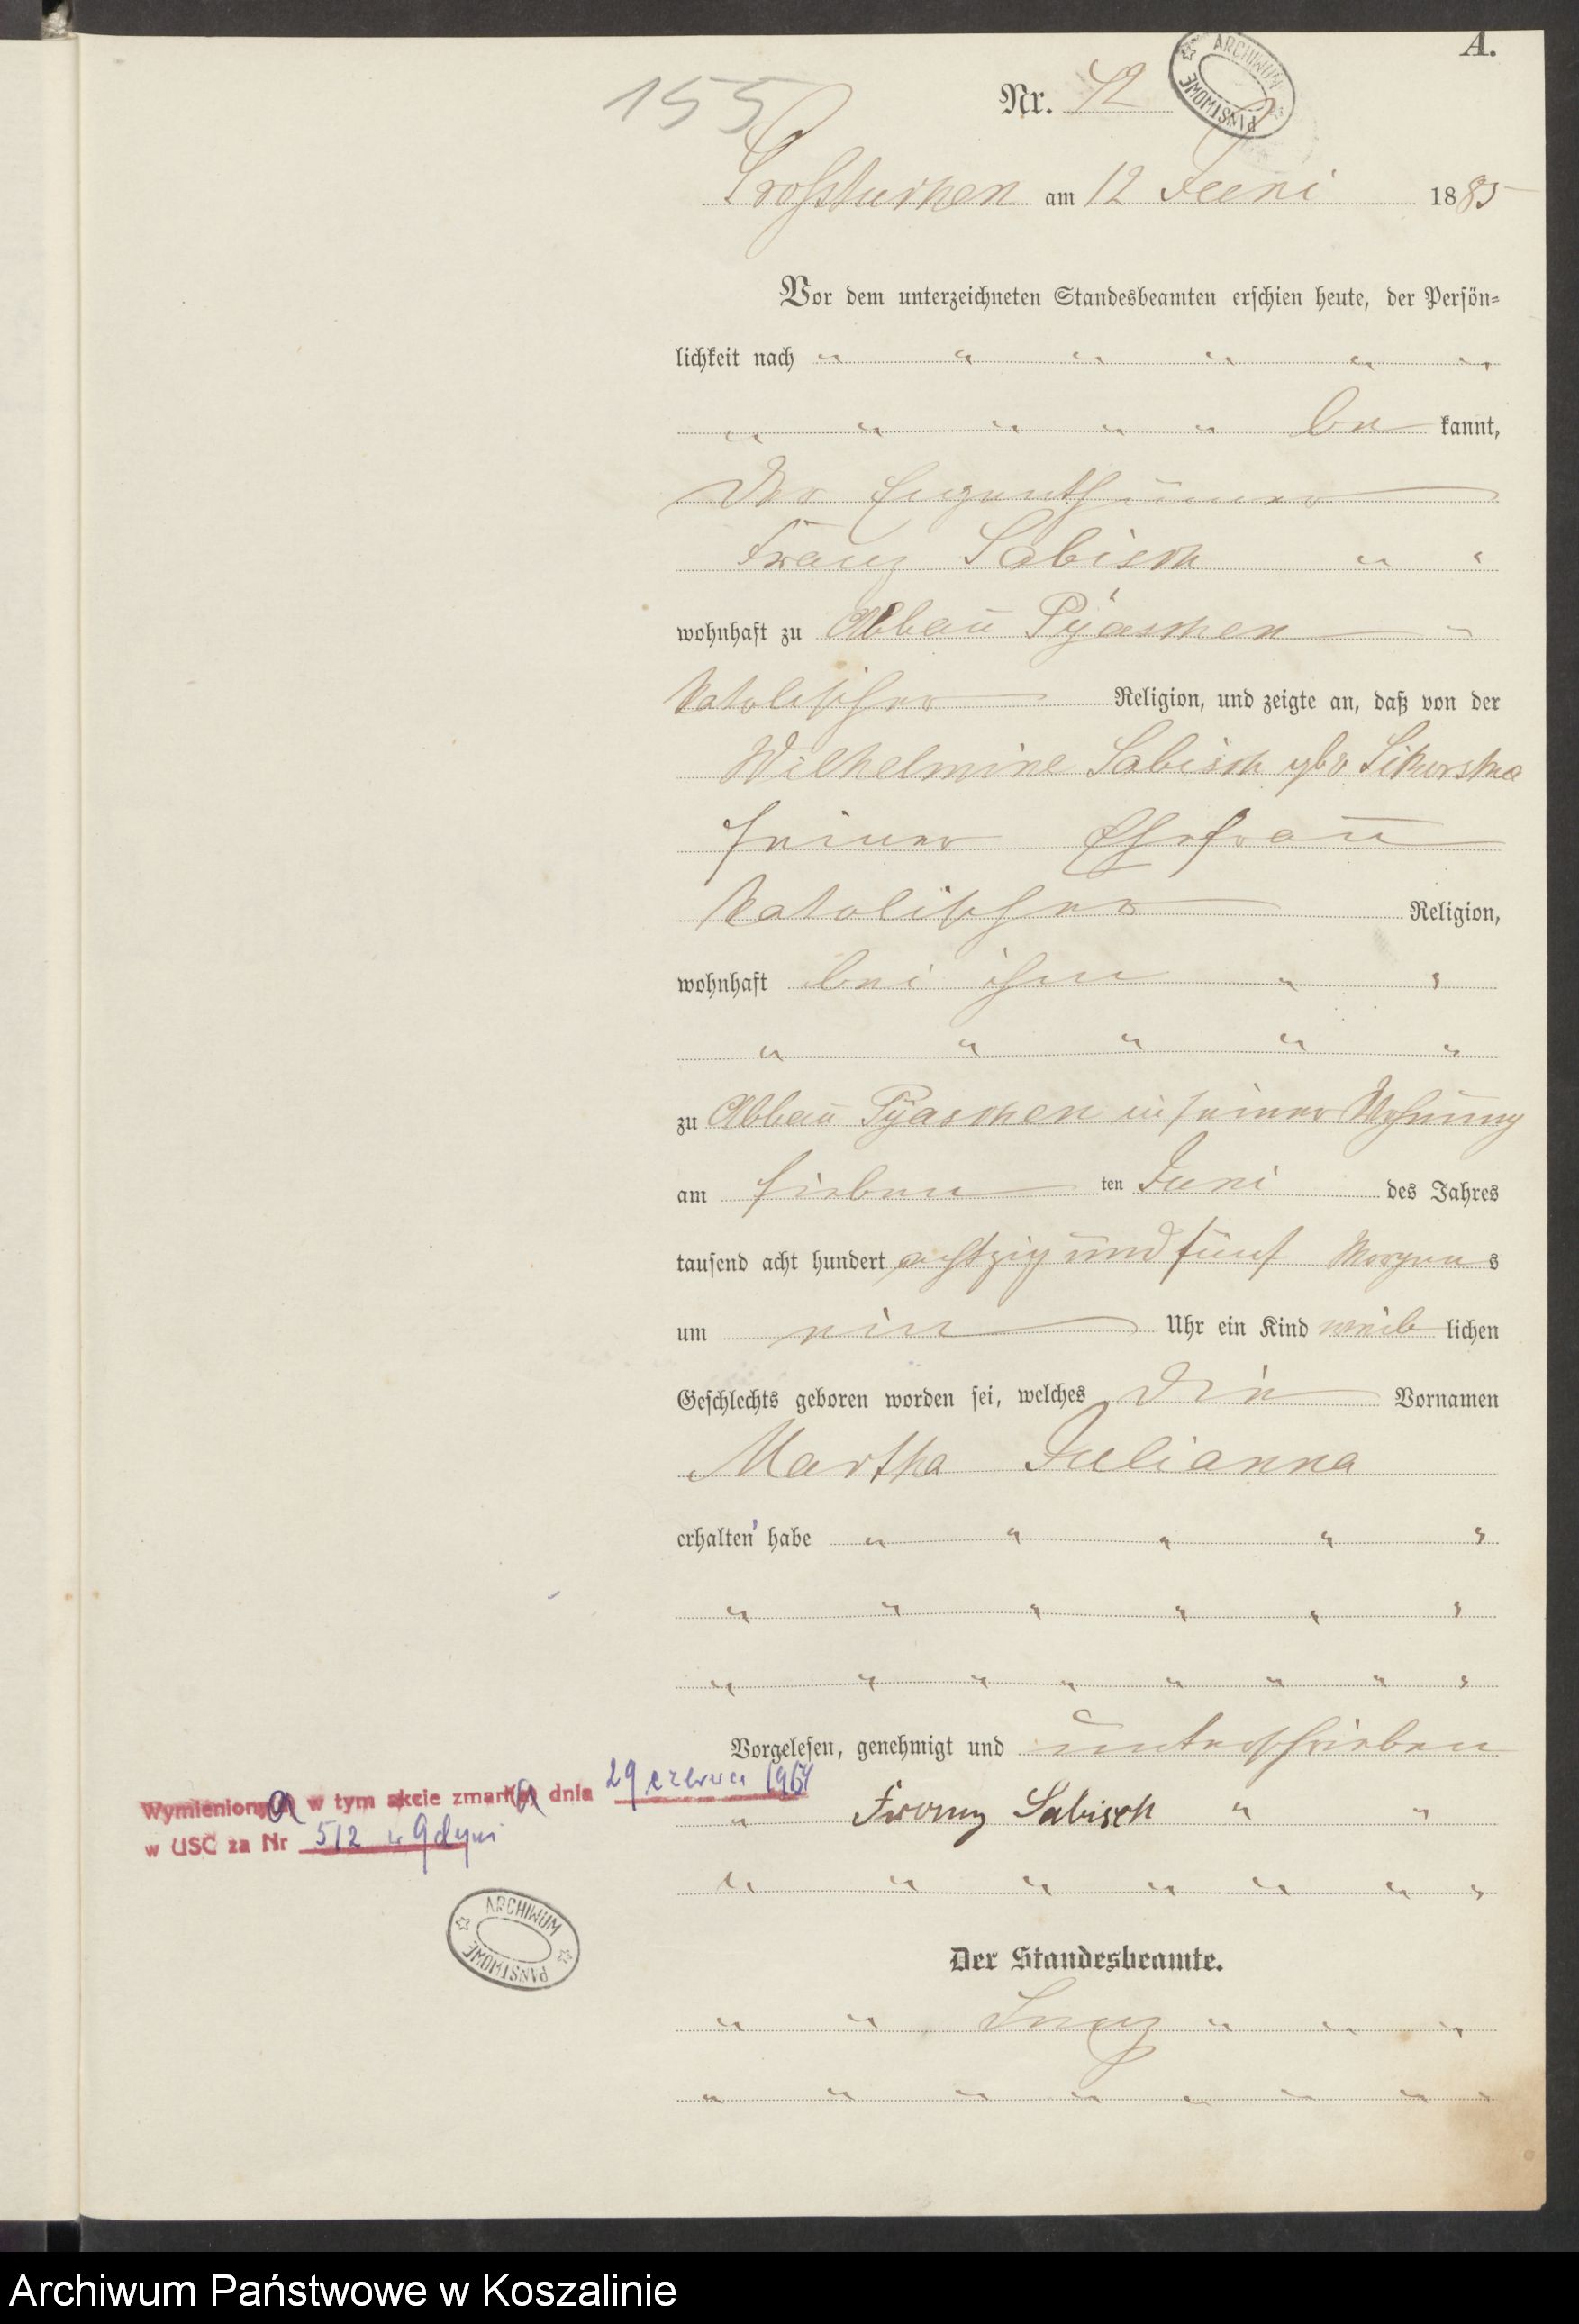 A.
155
Nr. 42
ARCHIWUM PAŃSTWOWE
am 12 Juni 1885
Vor dem unterzeichneten Standesbeamten erschien heute, der Persön-
lichkeit nach " " " " " "
" " " " " be kannt,
der Eigenthümer
Franz Sabisch " "
wohnhaft zu Abbau Pyaschen "
katolischer Religion, und zeigte an, daß von der
Wilhelmine Sabisch geb. Sikorska
seiner Ehefrau
katolischer Religion,
wohnhaft bei ihm " "
" " " " "
zu Abbau Pyaschen in seiner Wohnung
am sieben ten Juni des Jahres
tausend acht hundert achtzig und fünf Morgens
um ein Uhr ein Kind weib lichen
Geschlechts geboren worden sei, welches die Vornamen
Martha Julianna
erhalten habe " " " " "
" " " " " "
" " " " " " " "
Vorgelesen, genehmigt und unterschrieben
" Franz Sabisch " "
" " " " " " "
Wymieniona w tym akcie zmarła dnia 29 czerwca 1964
w USC za Nr 512 w Gdyni
ARCHIWUM PAŃSTWOWE
Der Standesbeamte.
" " " " "
" " " " " " " "
Archiwum Państwowe w Koszalinie